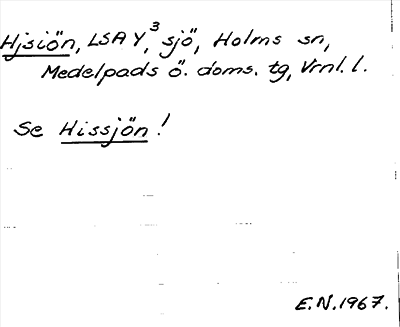 Hjsiön, LSA Y,³ sjö, Holms sn,
Medelpads ö. doms. tg, Vrnl. l.
Se Hissjön!
E.N. 1967.